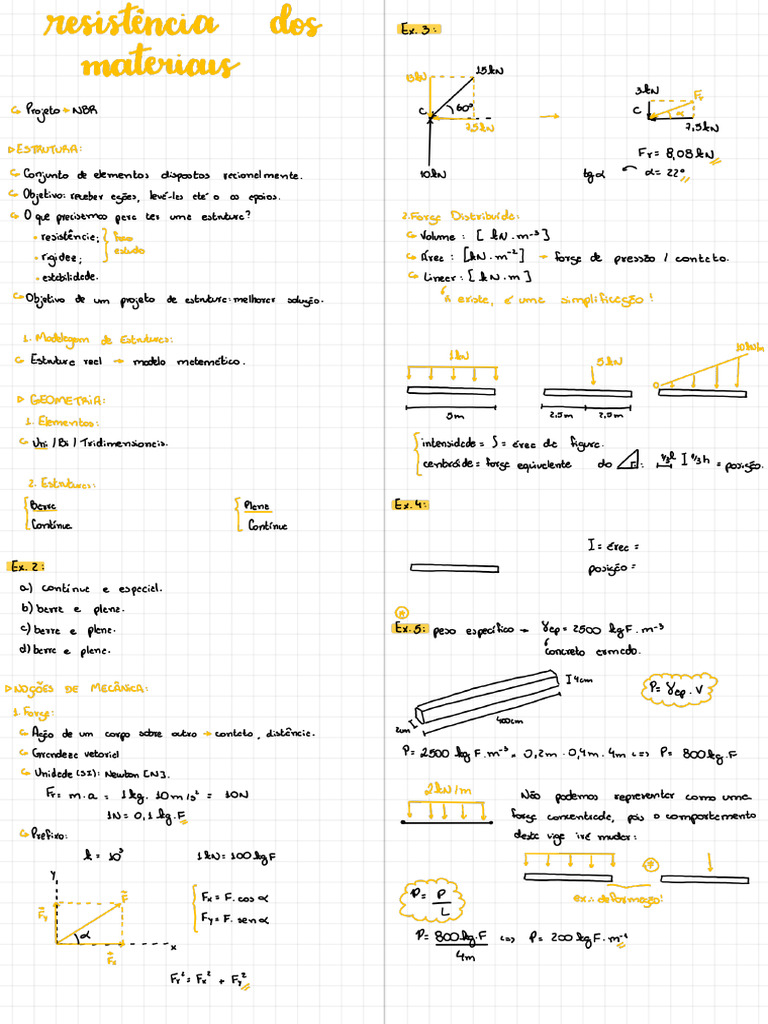 resistência dos
materiais
↳ Projeto → NBR
▷ ESTRUTURA:
↳ Conjunto de elementos dispostos racionalmente.
↳ Objetivo: receber ações, levá-las até o os apoios.
↳ O que precisamos para ter uma estrutura?
• resistência;
• rigidez;
foco
estudo
• estabilidade.
↳ Objetivo de um projeto de estrutura: melhorar solução.
1. Modelagem de Estruturas:
↳ Estrutura real → modelo matemático.
▷ GEOMETRIA:
1. Elementos:
↳ Uni / Bi / Tridimensionais.
2. Estruturas:
Barra
Contínua
Plana
Contínua
Ex. 2:
a) contínua e espacial.
b) barra e plana.
c) barra e plana.
d) barra e plana.
▷ NOÇÕES DE MECÂNICA:
1. Força:
↳ Ação de um corpo sobre outro → contato, distância.
↳ Grandeza vetorial
↳ Unidade (SI): Newton [N].
Fr = m.a = 1 kg. 10 m/s² = 10N
1N = 0,1 kg.F
↳ Prefixo:
k = 10³ 1kN = 100 kgF
y
F
Fy
α
Fx
x
Fx = F. cos α
Fy = F. sen α
Fr² = Fx² + Fy²
Ex. 3:
13kN
15kN
C
60°
7,5kN
10kN
→
3kN
C
Fr
α
7,5kN
Fr = 8,08 kN
tg α α = 22°
2. Força Distribuída:
↳ Volume: [kN.m⁻³]
↳ Área: [kN.m⁻²] → força de pressão / contato.
↳ Linear: [kN.m]
ñ existe, é uma simplificação!
1kN
5m
5kN
2,5m 2,5m
10kN/m
intensidade = S = área da figura.
centroide = força equivalente do : ⅓l ⅓h = posição.
Ex. 4:
I = área =
posição =
Ex. 5: peso específico → γcp = 2500 kgF.m⁻³
concreto armado.
4cm
2cm
400cm
P = γcp . V
P = 2500 kgF.m⁻³ . 0,2m . 0,4m . 4m ⇔ P = 800 kg.F
2kN/m
Não podemos representar como uma
força concentrada, pois o comportamento
desta viga irá mudar:
ex.: deformação!
P = P/L
P = 800 kg.F / 4m ⇔ P = 200 kgF.m⁻¹